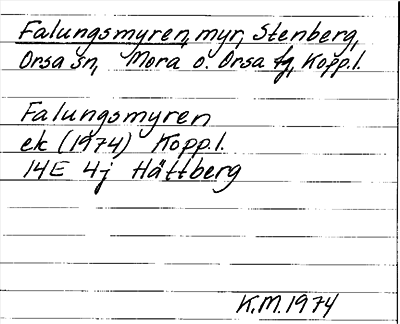 Falungsmyren, myr, Stenberg,
Orsa sn, Mora o. Orsa tg, Kopp.l.
Falungsmyren
ek (1974) Kopp.l.
14E 4j Hättberg
K.M. 1974